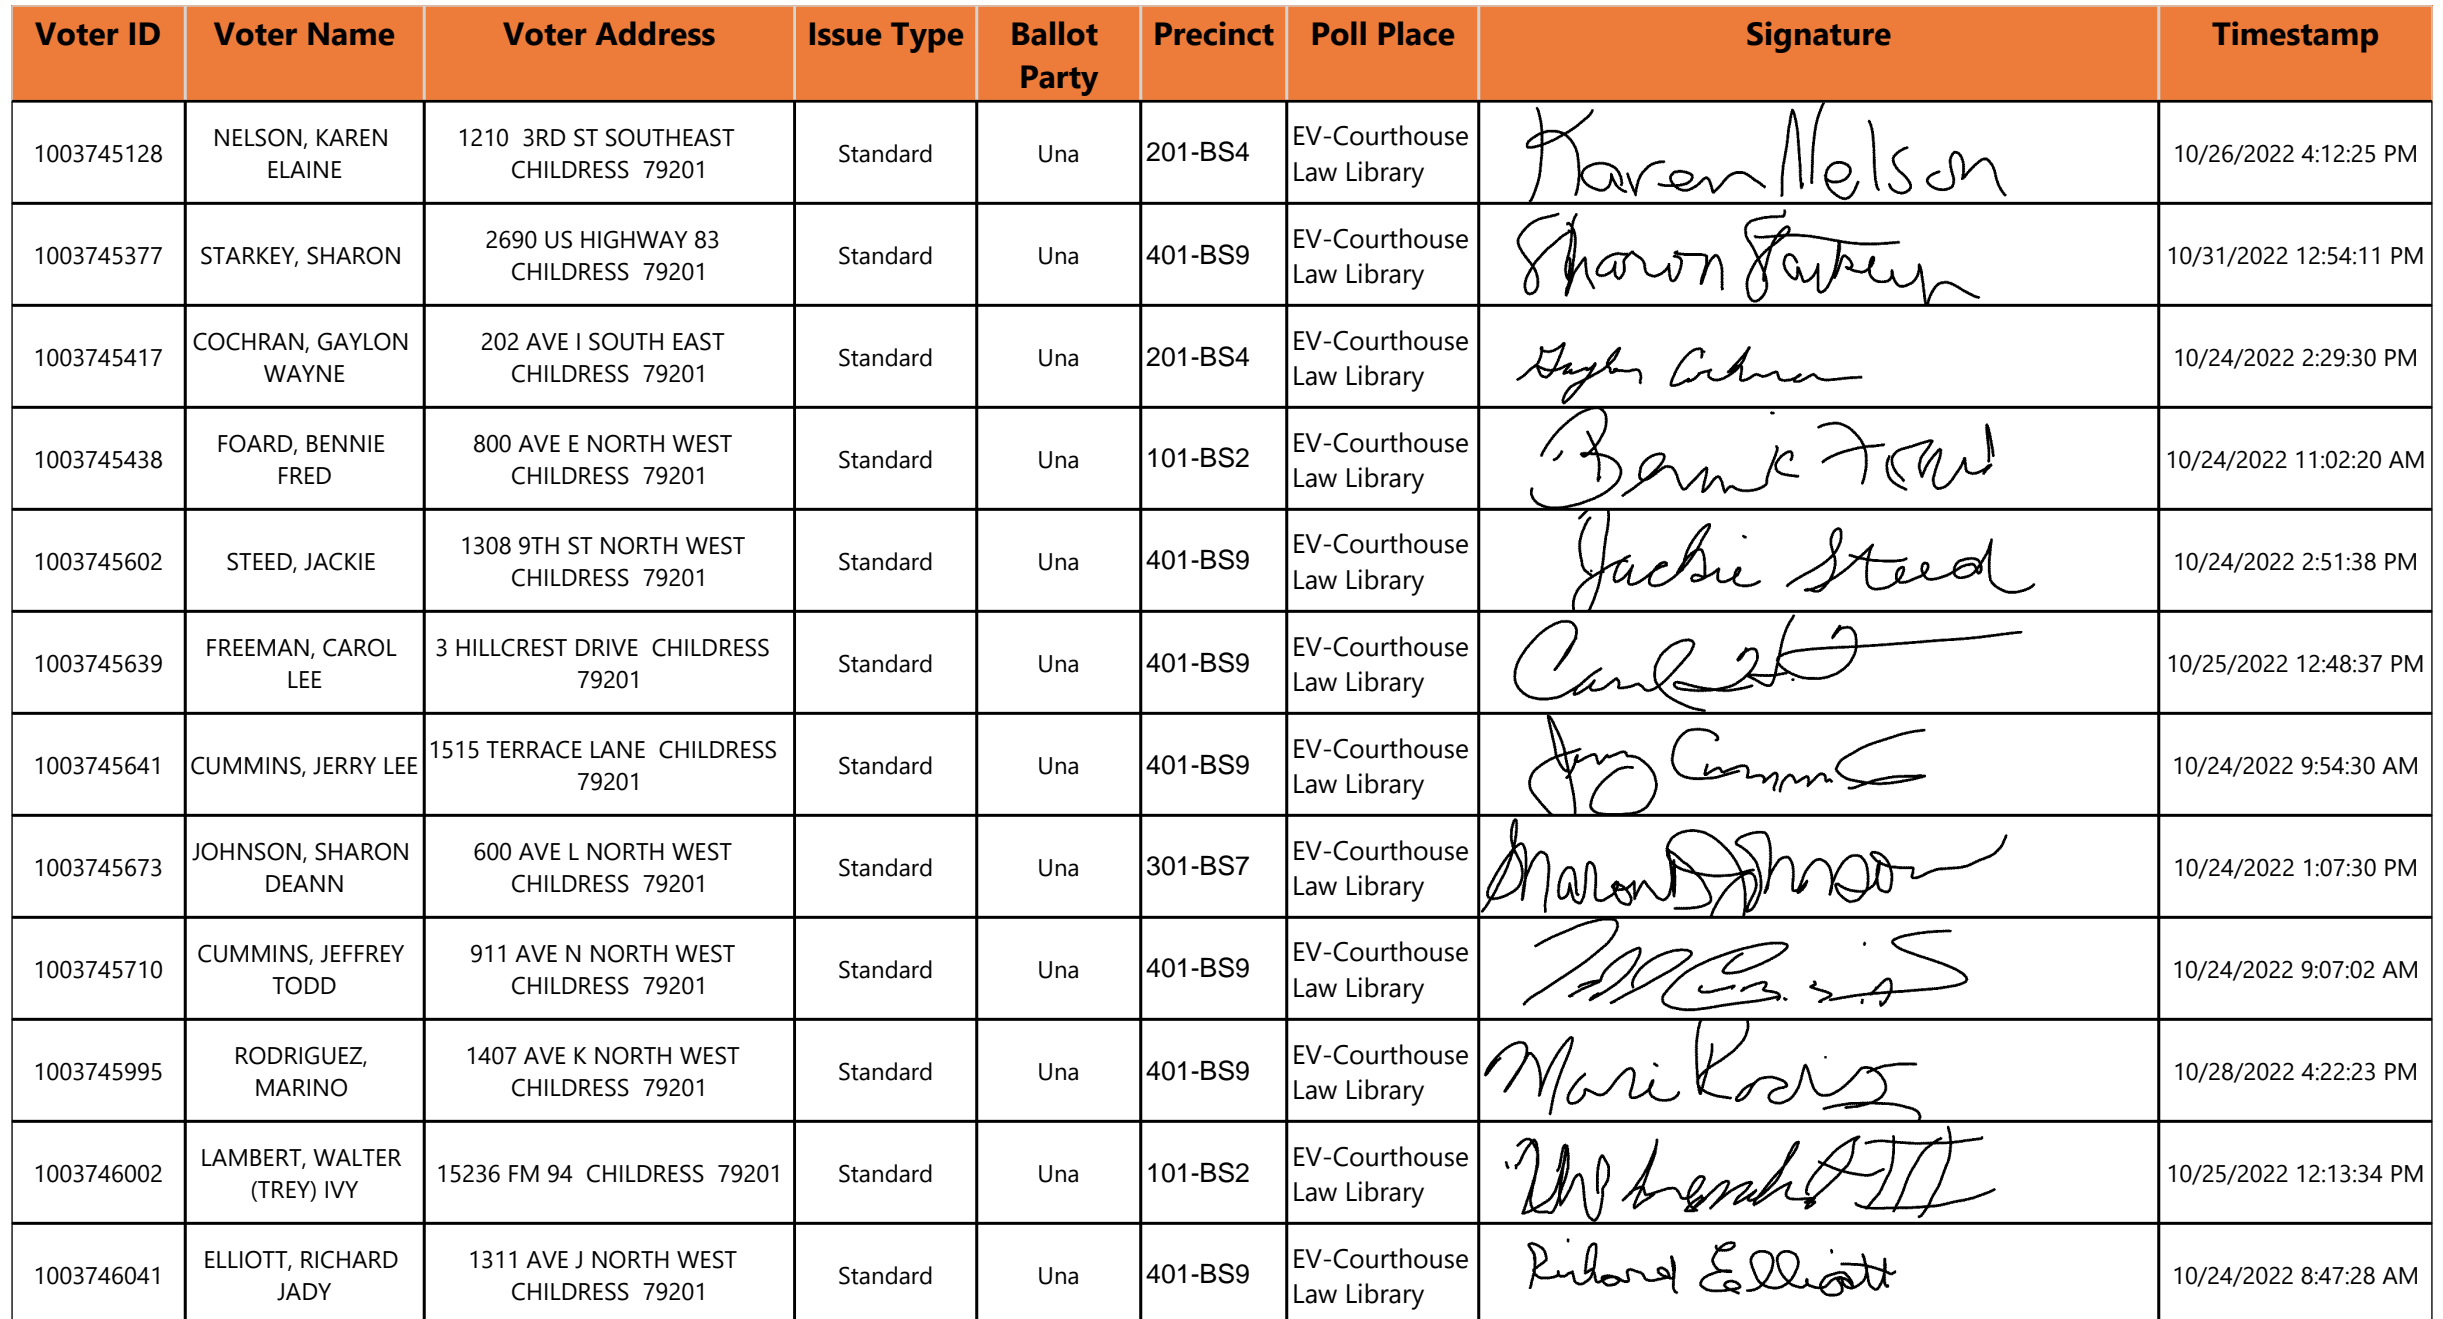 Voter ID Voter Name Voter Address Issue Type Ballot Party Precinct Poll Place Signature Timestamp
1003745128 NELSON, KAREN ELAINE 1210 3RD ST SOUTHEAST CHILDRESS 79201 Standard Una 201-BS4 EV-Courthouse Law Library Karen Nelson 10/26/2022 4:12:25 PM
1003745377 STARKEY, SHARON 2690 US HIGHWAY 83 CHILDRESS 79201 Standard Una 401-BS9 EV-Courthouse Law Library Sharon Starkey 10/31/2022 12:54:11 PM
1003745417 COCHRAN, GAYLON WAYNE 202 AVE I SOUTH EAST CHILDRESS 79201 Standard Una 201-BS4 EV-Courthouse Law Library Gaylon Cochran 10/24/2022 2:29:30 PM
1003745438 FOARD, BENNIE FRED 800 AVE E NORTH WEST CHILDRESS 79201 Standard Una 101-BS2 EV-Courthouse Law Library Bennie Foard 10/24/2022 11:02:20 AM
1003745602 STEED, JACKIE 1308 9TH ST NORTH WEST CHILDRESS 79201 Standard Una 401-BS9 EV-Courthouse Law Library Jackie Steed 10/24/2022 2:51:38 PM
1003745639 FREEMAN, CAROL LEE 3 HILLCREST DRIVE CHILDRESS 79201 Standard Una 401-BS9 EV-Courthouse Law Library Carol 10/25/2022 12:48:37 PM
1003745641 CUMMINS, JERRY LEE 1515 TERRACE LANE CHILDRESS 79201 Standard Una 401-BS9 EV-Courthouse Law Library Jerry Cummins 10/24/2022 9:54:30 AM
1003745673 JOHNSON, SHARON DEANN 600 AVE L NORTH WEST CHILDRESS 79201 Standard Una 301-BS7 EV-Courthouse Law Library Sharon D Johnson 10/24/2022 1:07:30 PM
1003745710 CUMMINS, JEFFREY TODD 911 AVE N NORTH WEST CHILDRESS 79201 Standard Una 401-BS9 EV-Courthouse Law Library 10/24/2022 9:07:02 AM
1003745995 RODRIGUEZ, MARINO 1407 AVE K NORTH WEST CHILDRESS 79201 Standard Una 401-BS9 EV-Courthouse Law Library 10/28/2022 4:22:23 PM
1003746002 LAMBERT, WALTER (TREY) IVY 15236 FM 94 CHILDRESS 79201 Standard Una 101-BS2 EV-Courthouse Law Library Lambert III 10/25/2022 12:13:34 PM
1003746041 ELLIOTT, RICHARD JADY 1311 AVE J NORTH WEST CHILDRESS 79201 Standard Una 401-BS9 EV-Courthouse Law Library Richard Elliott 10/24/2022 8:47:28 AM